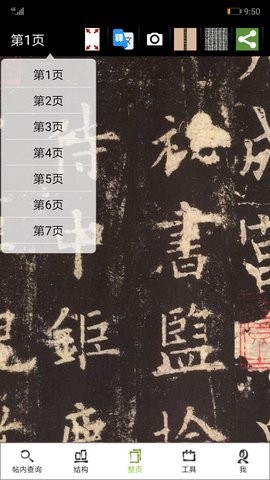 9:50
第1页
第1页
第2页
第3页
第4页
第5页
第6页
第7页
秘書監
侍中鉅
帖内查询
结构
整页
工具
我